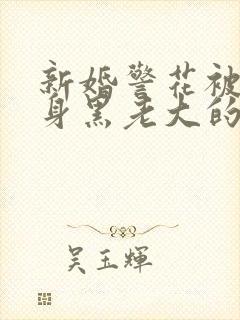 新婚警花被
身黑老大的
吴玉辉